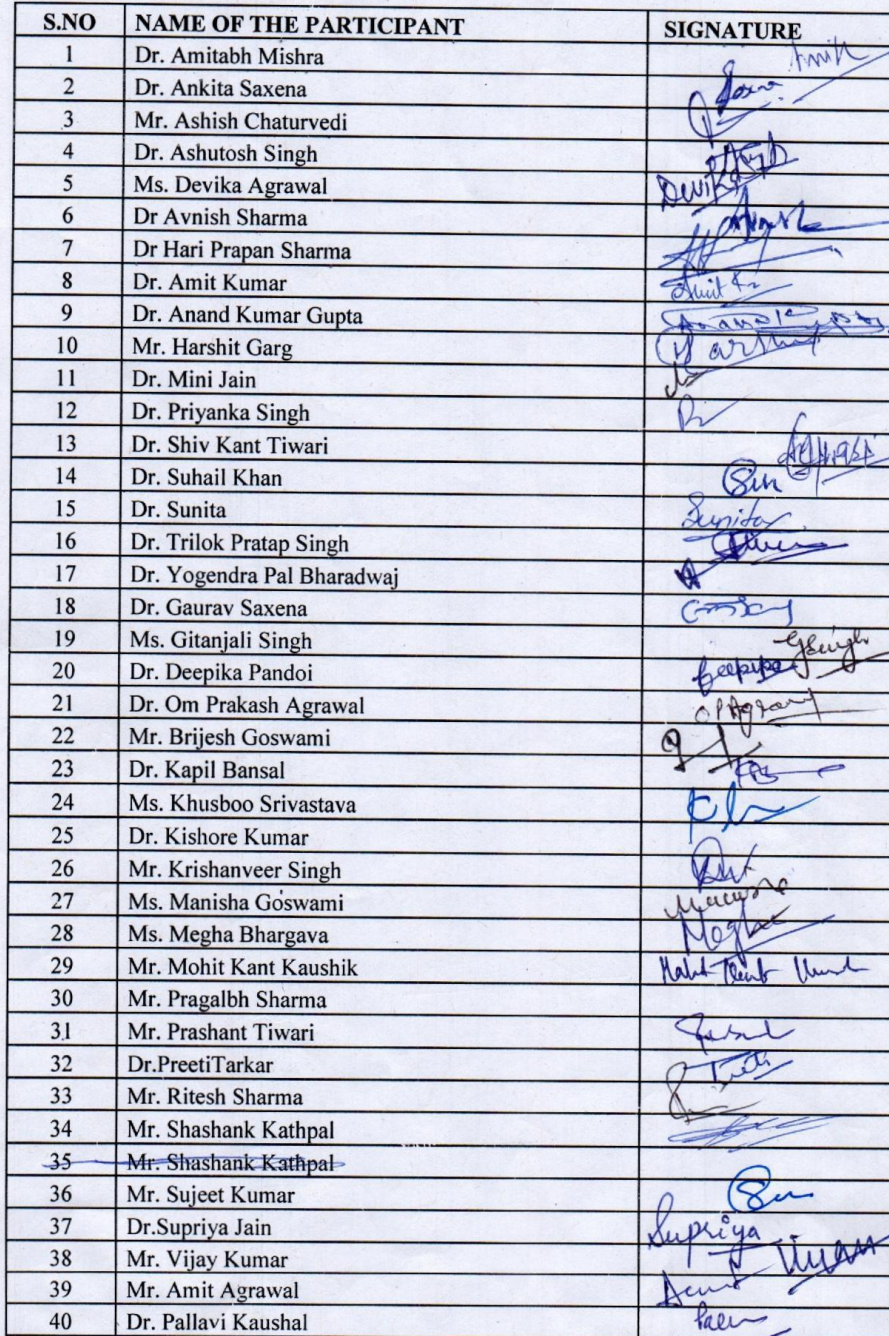 S.NO NAME OF THE PARTICIPANT SIGNATURE
1 Dr. Amitabh Mishra Amit
2 Dr. Ankita Saxena
3 Mr. Ashish Chaturvedi
4 Dr. Ashutosh Singh
5 Ms. Devika Agrawal Devika
6 Dr Avnish Sharma
7 Dr Hari Prapan Sharma
8 Dr. Amit Kumar Amit Kr
9 Dr. Anand Kumar Gupta
10 Mr. Harshit Garg Harshit
11 Dr. Mini Jain
12 Dr. Priyanka Singh
13 Dr. Shiv Kant Tiwari
14 Dr. Suhail Khan
15 Dr. Sunita Sunita
16 Dr. Trilok Pratap Singh
17 Dr. Yogendra Pal Bharadwaj
18 Dr. Gaurav Saxena
19 Ms. Gitanjali Singh GSingh
20 Dr. Deepika Pandoi Deepika
21 Dr. Om Prakash Agrawal OPAgrawal
22 Mr. Brijesh Goswami
23 Dr. Kapil Bansal
24 Ms. Khusboo Srivastava
25 Dr. Kishore Kumar
26 Mr. Krishanveer Singh
27 Ms. Manisha Goswami
28 Ms. Megha Bhargava Megha
29 Mr. Mohit Kant Kaushik Mohit Kant
30 Mr. Pragalbh Sharma
31 Mr. Prashant Tiwari
32 Dr.PreetiTarkar
33 Mr. Ritesh Sharma
34 Mr. Shashank Kathpal
35 Mr. Shashank Kathpal
36 Mr. Sujeet Kumar
37 Dr.Supriya Jain Supriya
38 Mr. Vijay Kumar
39 Mr. Amit Agrawal
40 Dr. Pallavi Kaushal